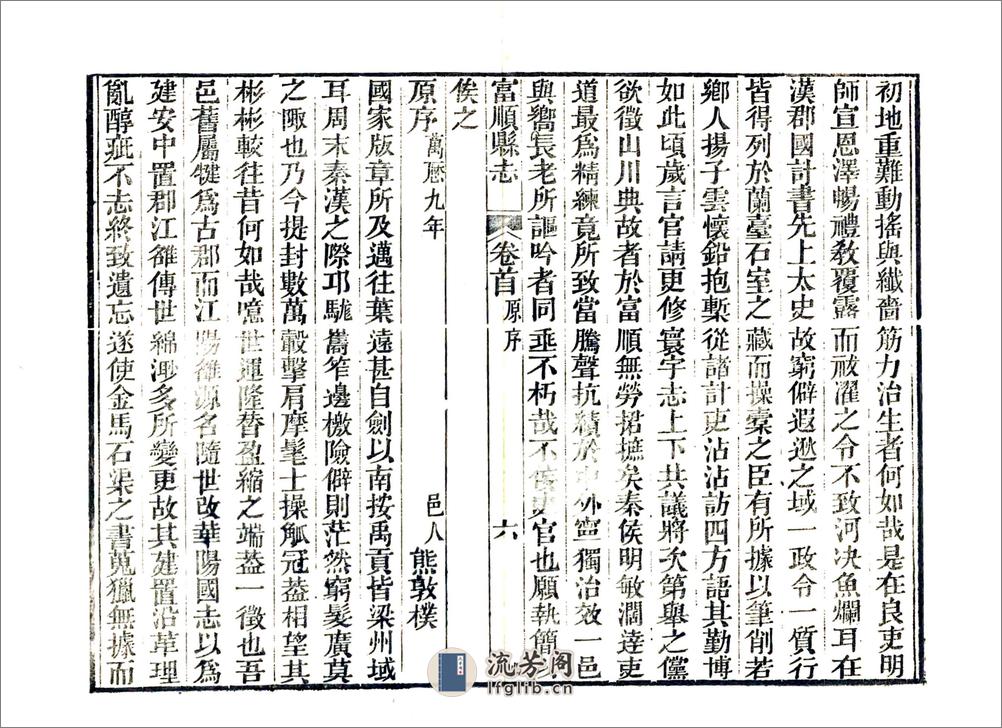 初地重難動搖與纖嗇筋力治生者何如哉是在良吏明
師宣恩澤暢禮敎覆露而祓濯之令不致河决魚爛耳在
漢郡國計書先上太史故窮僻遐逖之域一政令一質行
皆得列於蘭臺石室之藏而操槖之臣有所據以筆削若
鄉人揚子雲懷鉛抱槧從諸計吏沾沾訪四方語其勤博
如此頃歲言官請更修寰宇志上下共議將次第舉之儻
欲徵山川典故者於富順無勞捃摭矣秦侯明敏濶達吏
道最爲精練竟所致當騰聲抗績於中外寧獨治效一邑
與嚮長老所謳吟者同垂不朽哉不佞史官也願執簡以
富順縣志 卷首 原序 六
俟之
原序 萬歷九年 邑人 熊敦樸
國家版章所及邁往葉遠甚自劍以南按禹貢皆梁州域
耳周末秦漢之際邛駹巂笮邊檄險僻則茫然窮髮廣莫
之陬也乃今提封數萬轂擊肩摩髦士操觚冠蓋相望其
彬彬較往昔何如哉噫世運隆替盈縮之端葢一徵也吾
邑舊屬犍爲古郡而江陽雒源名隨世改華陽國志以爲
建安中置郡江雒傳世綿渺多所變更故其建置沿革理
亂醇疵不志終致遺忘遂使金馬石渠之書蒐獵無據而
流芳阁
lfglib.cn